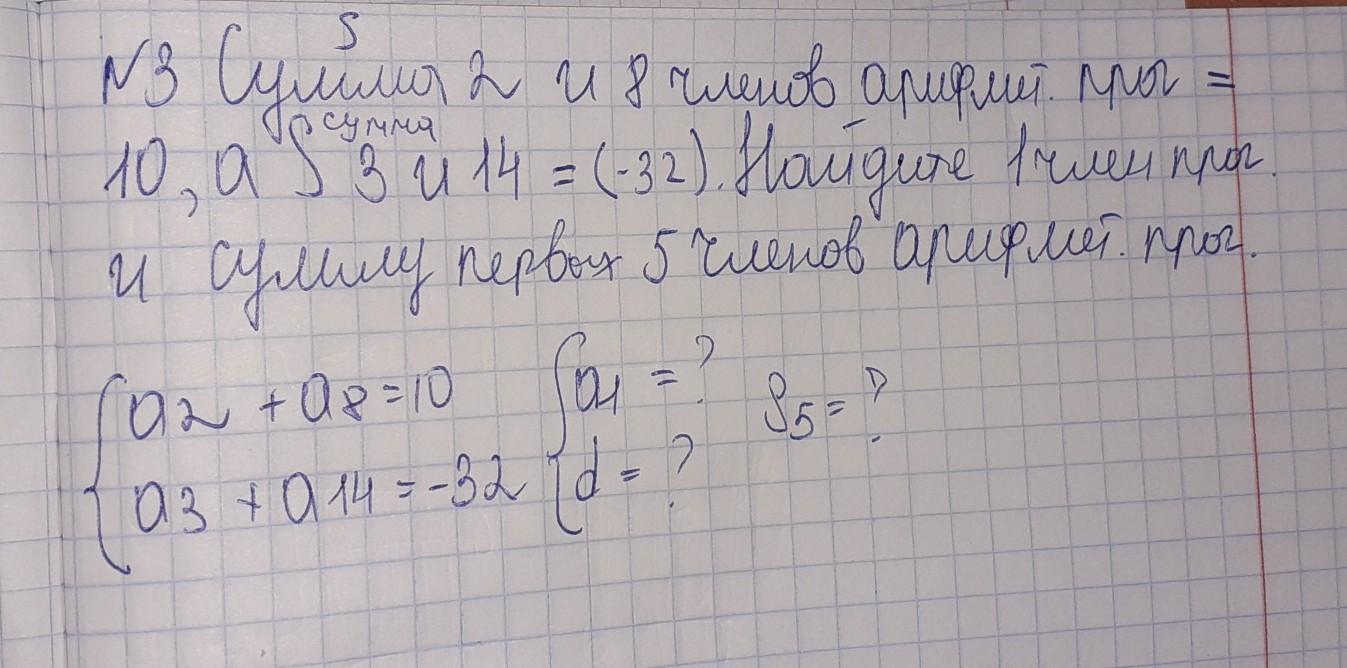 S
№3 Сумма 2 и 8 членов арифмет. прог =
сумма
10, а S 3 и 14 = (-32). Найдите 1 член прог.
и сумму первых 5 членов арифмет. прог.
{a2 + a8 = 10 {a1 = ? S5 = ?
{a3 + a14 = -32 {d = ?